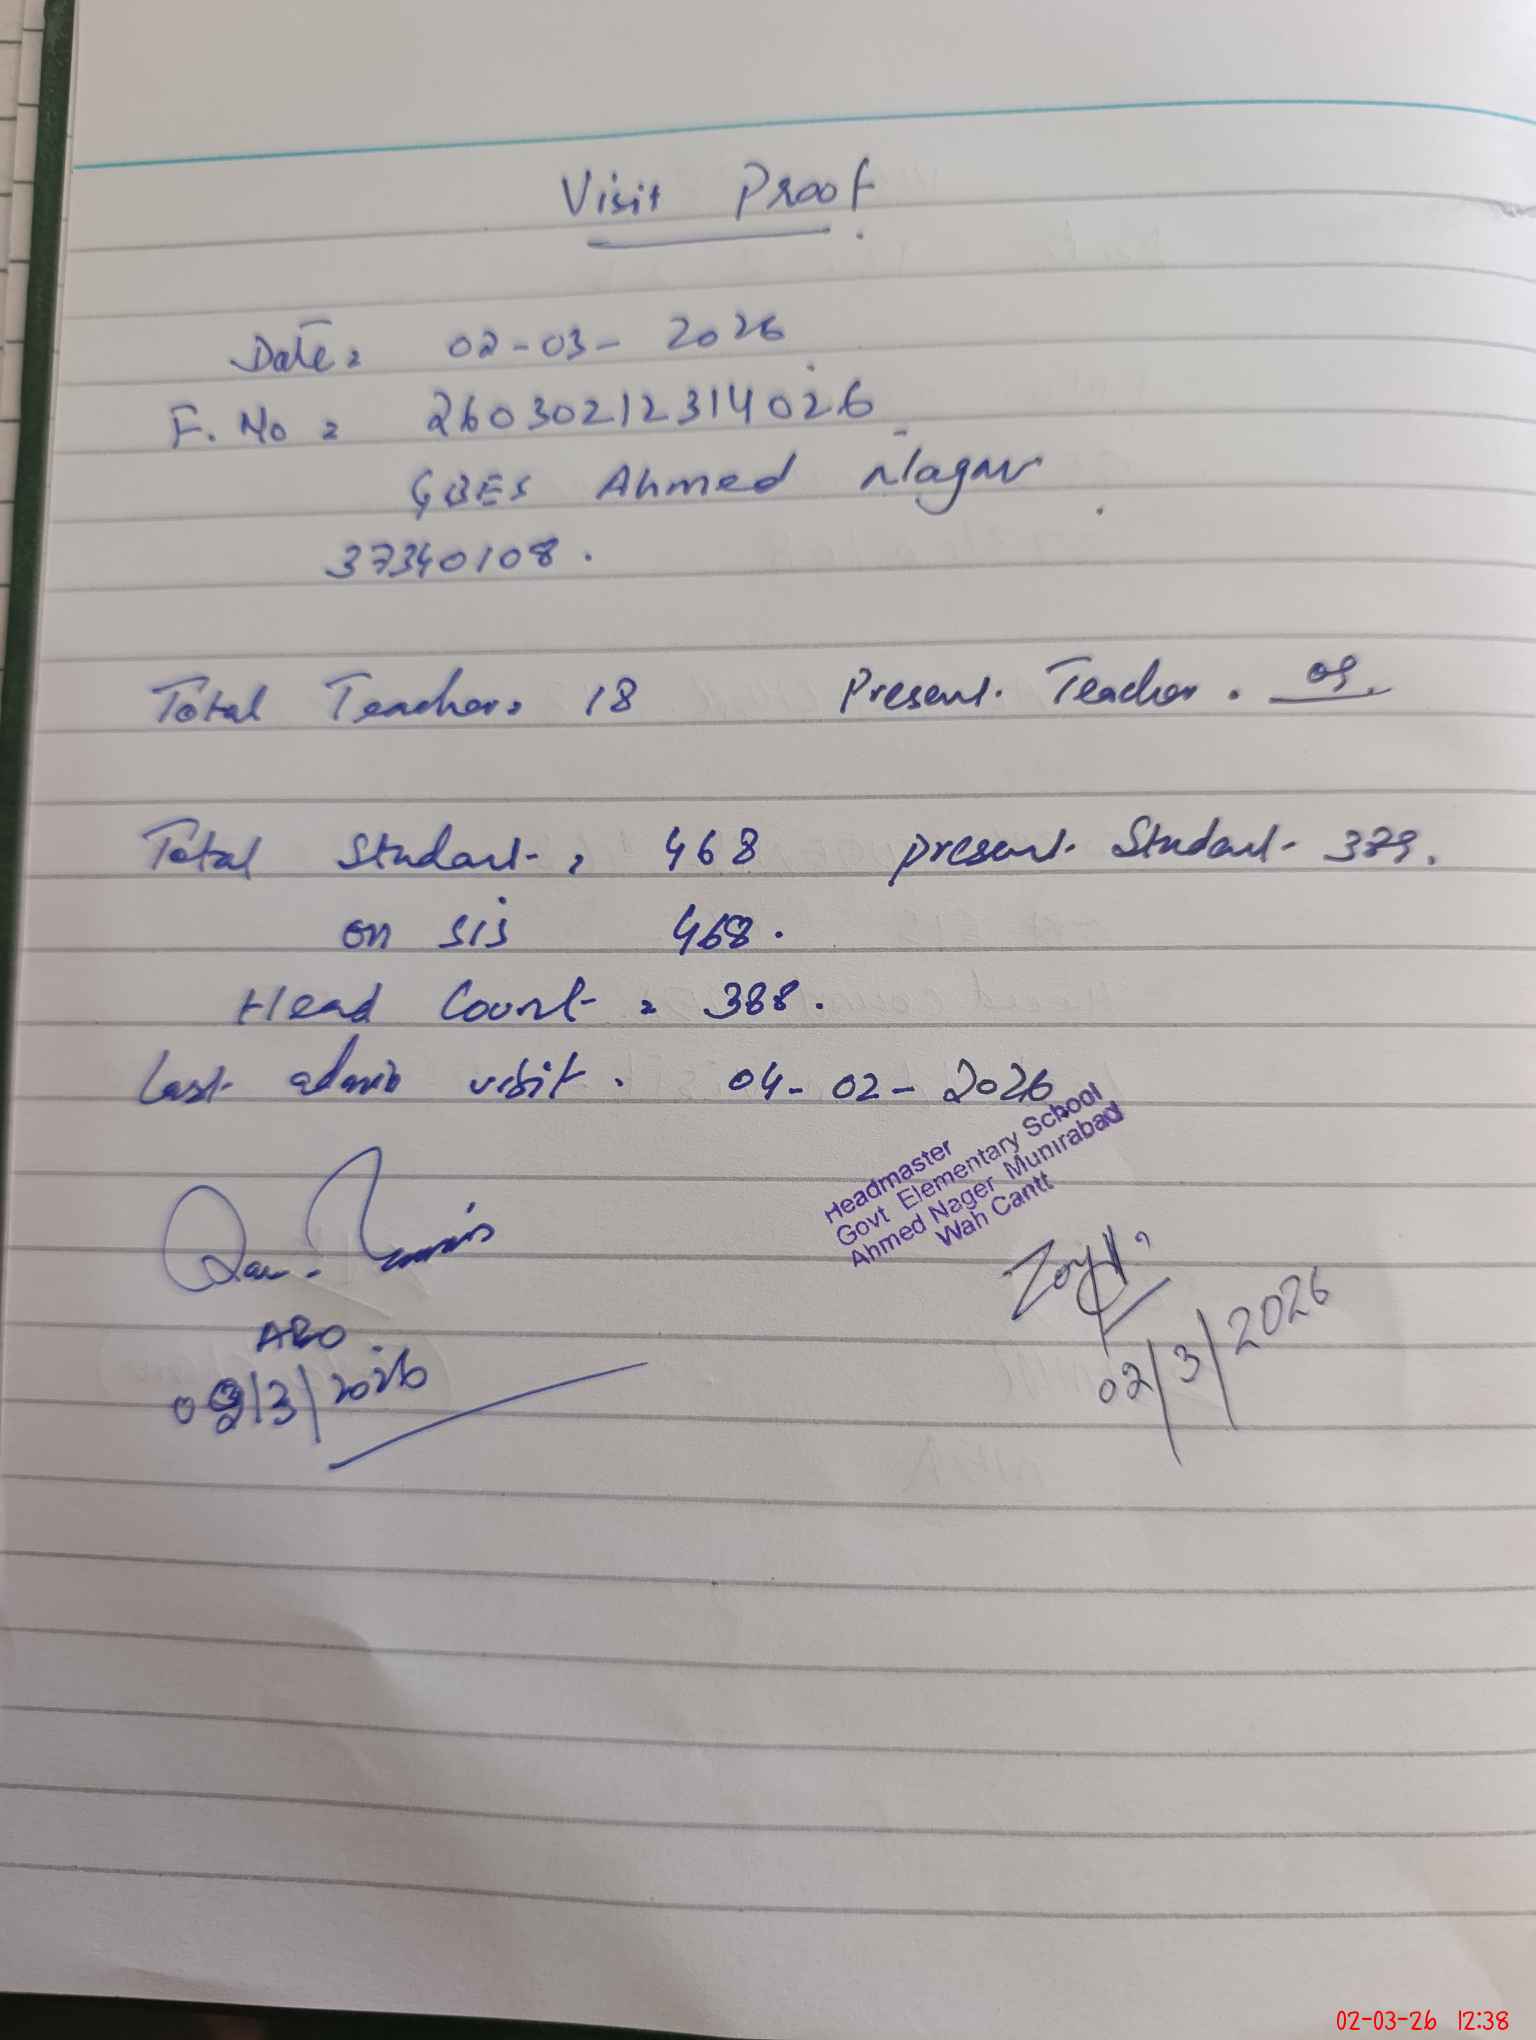 Visit Proof.
Date = 02-03-2026
F. No = 260302123114026
GBES Ahmed Nagar.
37340108.
Total Teachers 18 Present Teacher.
Total Student = 468 present Student
on sis 468.
Head Count = 388.
Last admin visit. 04-02-2026
Headmaster
Govt Elementary School
Ahmed Nager Munirabad
Wah Cantt
02/3/2026
02/3/2026
02-03-26 12:38